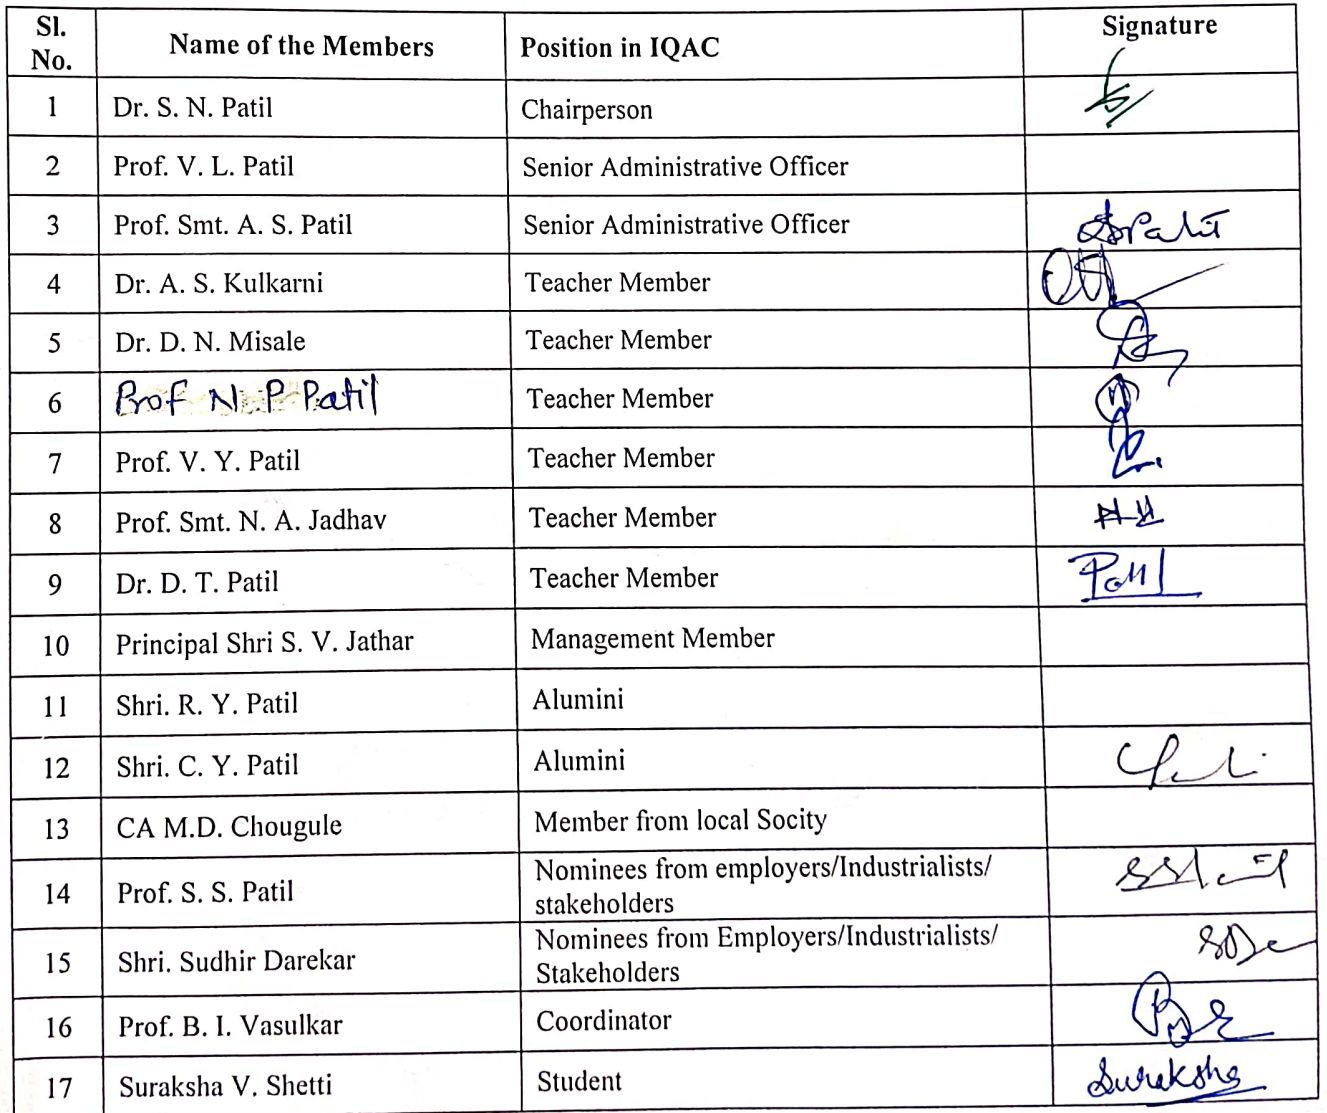 Sl. No. Name of the Members Position in IQAC Signature
1 Dr. S. N. Patil Chairperson
2 Prof. V. L. Patil Senior Administrative Officer
3 Prof. Smt. A. S. Patil Senior Administrative Officer
4 Dr. A. S. Kulkarni Teacher Member
5 Dr. D. N. Misale Teacher Member
6 Prof N. P Patil Teacher Member
7 Prof. V. Y. Patil Teacher Member
8 Prof. Smt. N. A. Jadhav Teacher Member
9 Dr. D. T. Patil Teacher Member
10 Principal Shri S. V. Jathar Management Member
11 Shri. R. Y. Patil Alumini
12 Shri. C. Y. Patil Alumini
13 CA M.D. Chougule Member from local Socity
14 Prof. S. S. Patil Nominees from employers/Industrialists/
stakeholders
15 Shri. Sudhir Darekar Nominees from Employers/Industrialists/
Stakeholders
16 Prof. B. I. Vasulkar Coordinator
17 Suraksha V. Shetti Student Suraksha